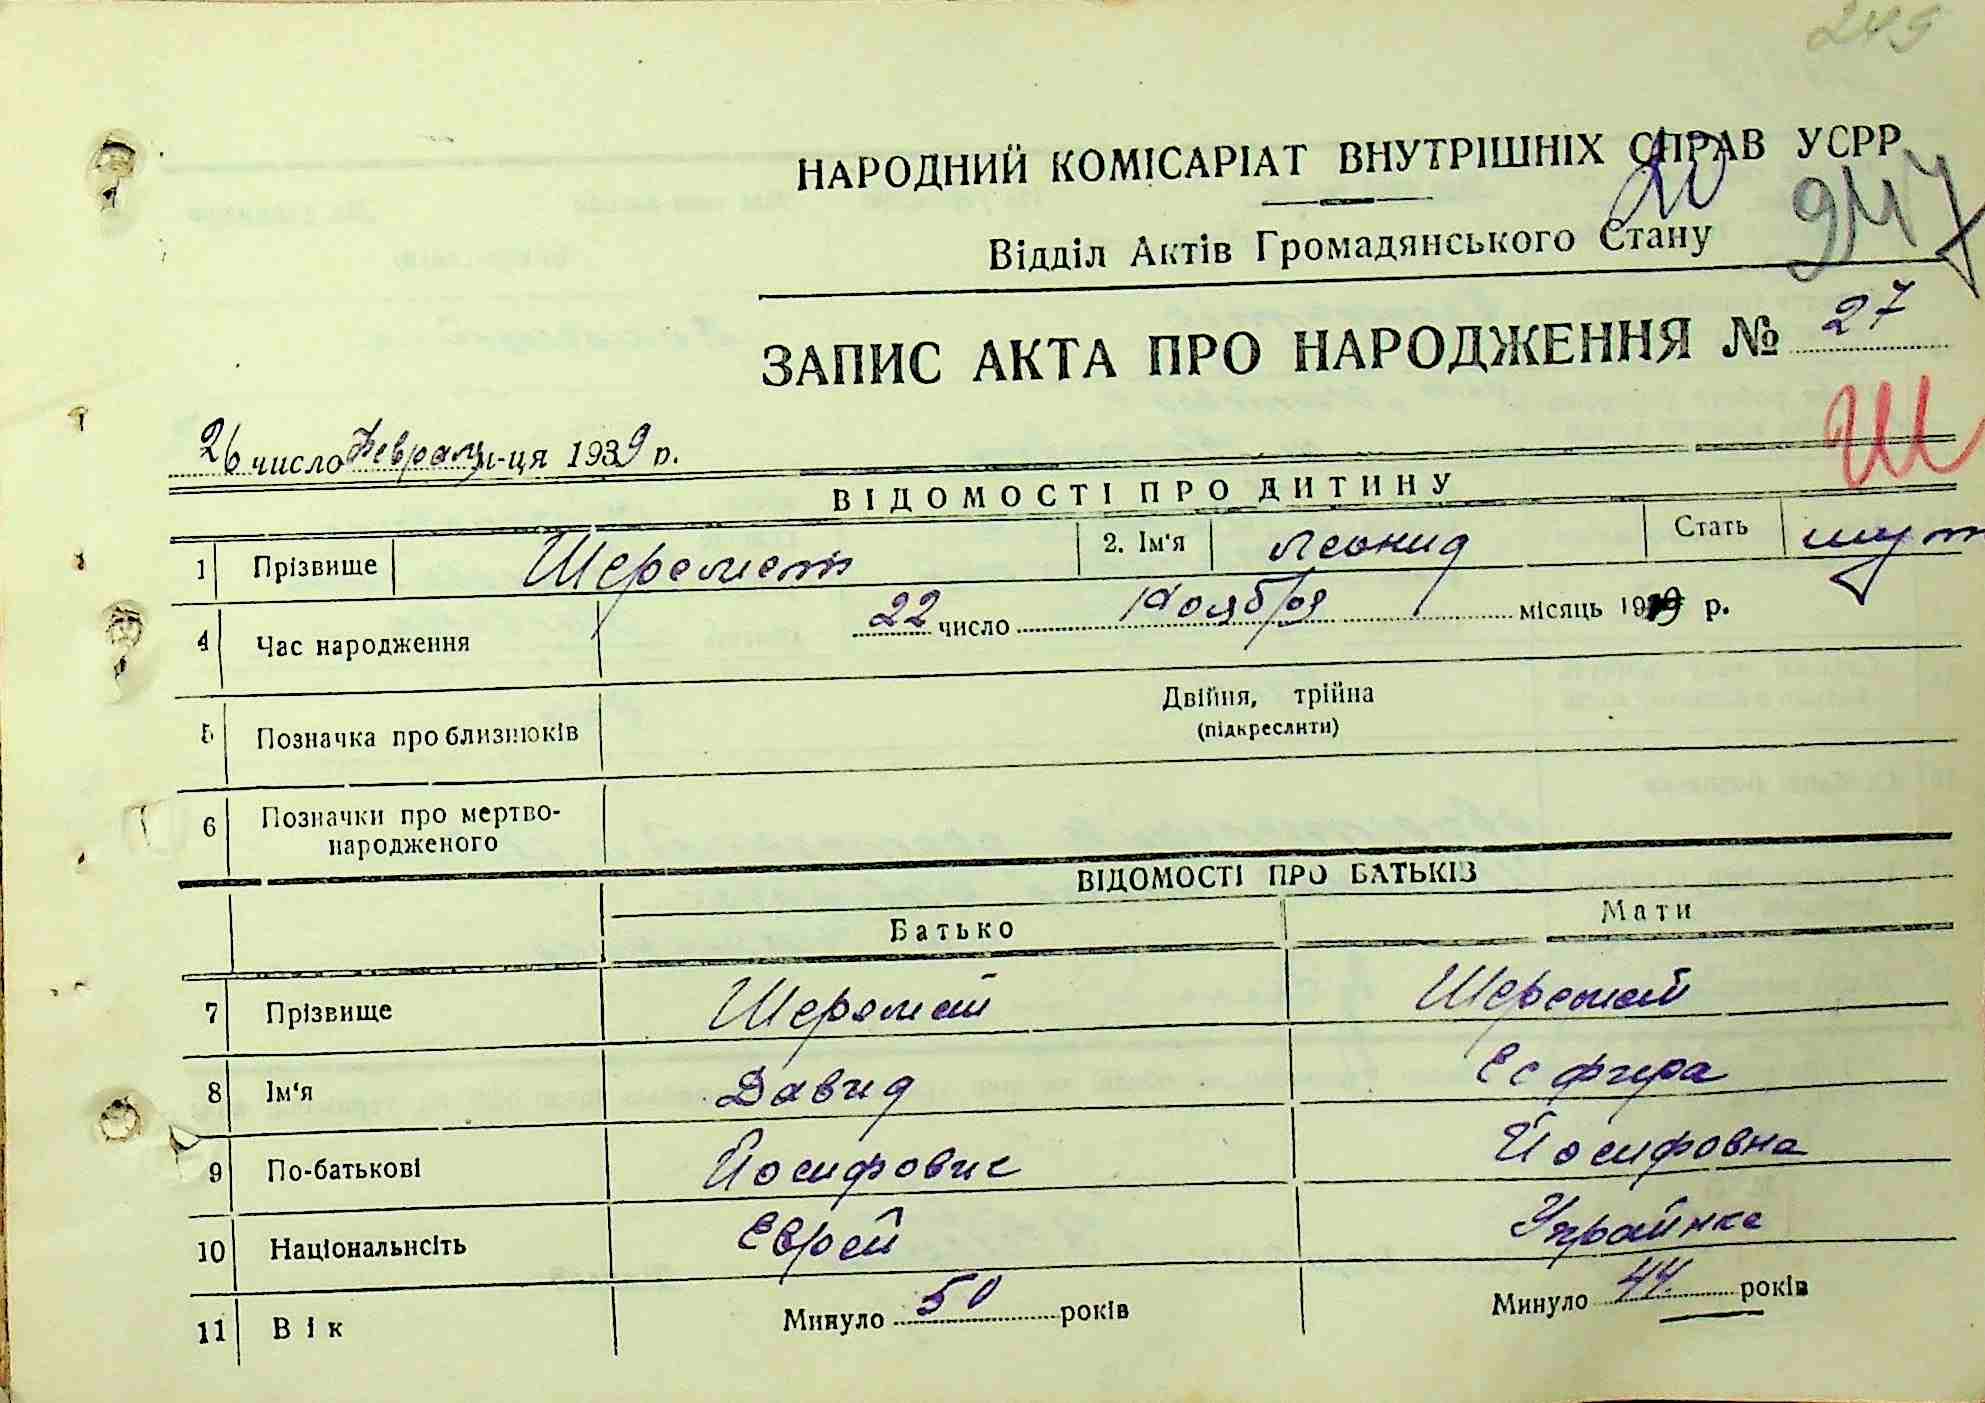 245
НАРОДНИЙ КОМІСАРІАТ ВНУТРІШНІХ СПРАВ УСРР
20
947
Відділ Актів Громадянського Стану
ЗАПИС АКТА ПРО НАРОДЖЕННЯ № 27
Ш
26 число Февраля м-ця 1939 р.
ВІДОМОСТІ ПРО ДИТИНУ
1 Прізвище Шеремет 2. Ім'я Леонид Стать муж
4 Час народження 22 число Ноября місяць 1919 р.
5 Позначка про близнюків Двійня, трійна
(підкреслити)
6 Позначки про мертво-
народженого
ВІДОМОСТІ ПРО БАТЬКІВ
Батько Мати
7 Прізвище Шеремет Шеремет
8 Ім'я Давид Есфира
9 По-батькові Йосифович Йосифовна
10 Національність Еврей Украйнка
11 Вік Минуло 50 років Минуло 44 років